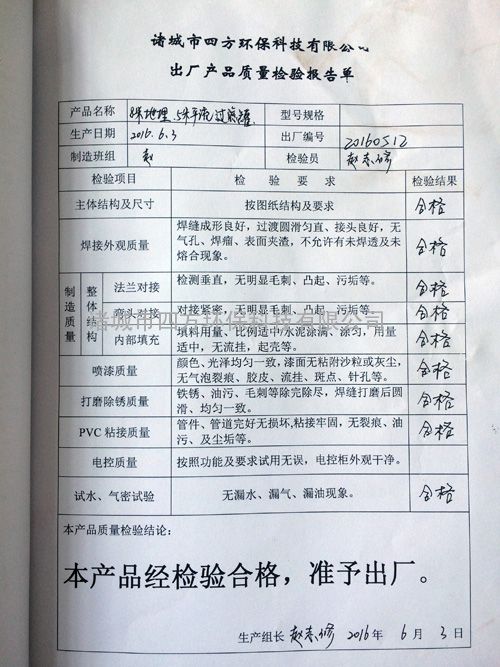 诸城市四方环保科技有限公司
出厂产品质量检验报告单
产品名称 地埋 过滤罐 型号规格
生产日期 2016.6.3 出厂编号 20160512
制造班组 赵 检验员 赵志修
检验项目 检 验 要 求 检验结果
主体结构及尺寸 按图纸结构及要求 合格
焊接外观质量 焊缝成形良好，过渡圆滑匀直、接头良好，无
气孔、焊瘤、表面夹渣，不允许有未焊透及未
熔合现象。 合格
制造质量 整体结构 法兰对接 检测垂直，无明显毛刺、凸起、污垢等。 合格
弯头对接 对接紧密，无明显毛刺、凸起、污垢等。 合格
诸城市四方环保科技有限公司
内部填充 填料用量、比例适中/水泥涂满、涂匀，用量
适中，无流挂，起壳等。 合格
喷漆质量 颜色、光泽均匀一致，漆面无粘附沙粒或灰尘，
无气泡裂痕、胶皮、流挂、斑点、针孔等。 合格
打磨除锈质量 铁锈、油污、毛刺等除完除尽，焊缝打磨后圆
滑、均匀一致。 合格
PVC 粘接质量 管件、管道完好无损坏,粘接牢固，无裂痕、油
污、及尘垢等。 合格
电控质量 按照功能及要求试用无误，电控柜外观干净。
试水、气密试验 无漏水、漏气、漏油现象。 合格
本产品质量检验结论：
本产品经检验合格，准予出厂。
生产组长 赵志修 2016 年 6 月 3 日